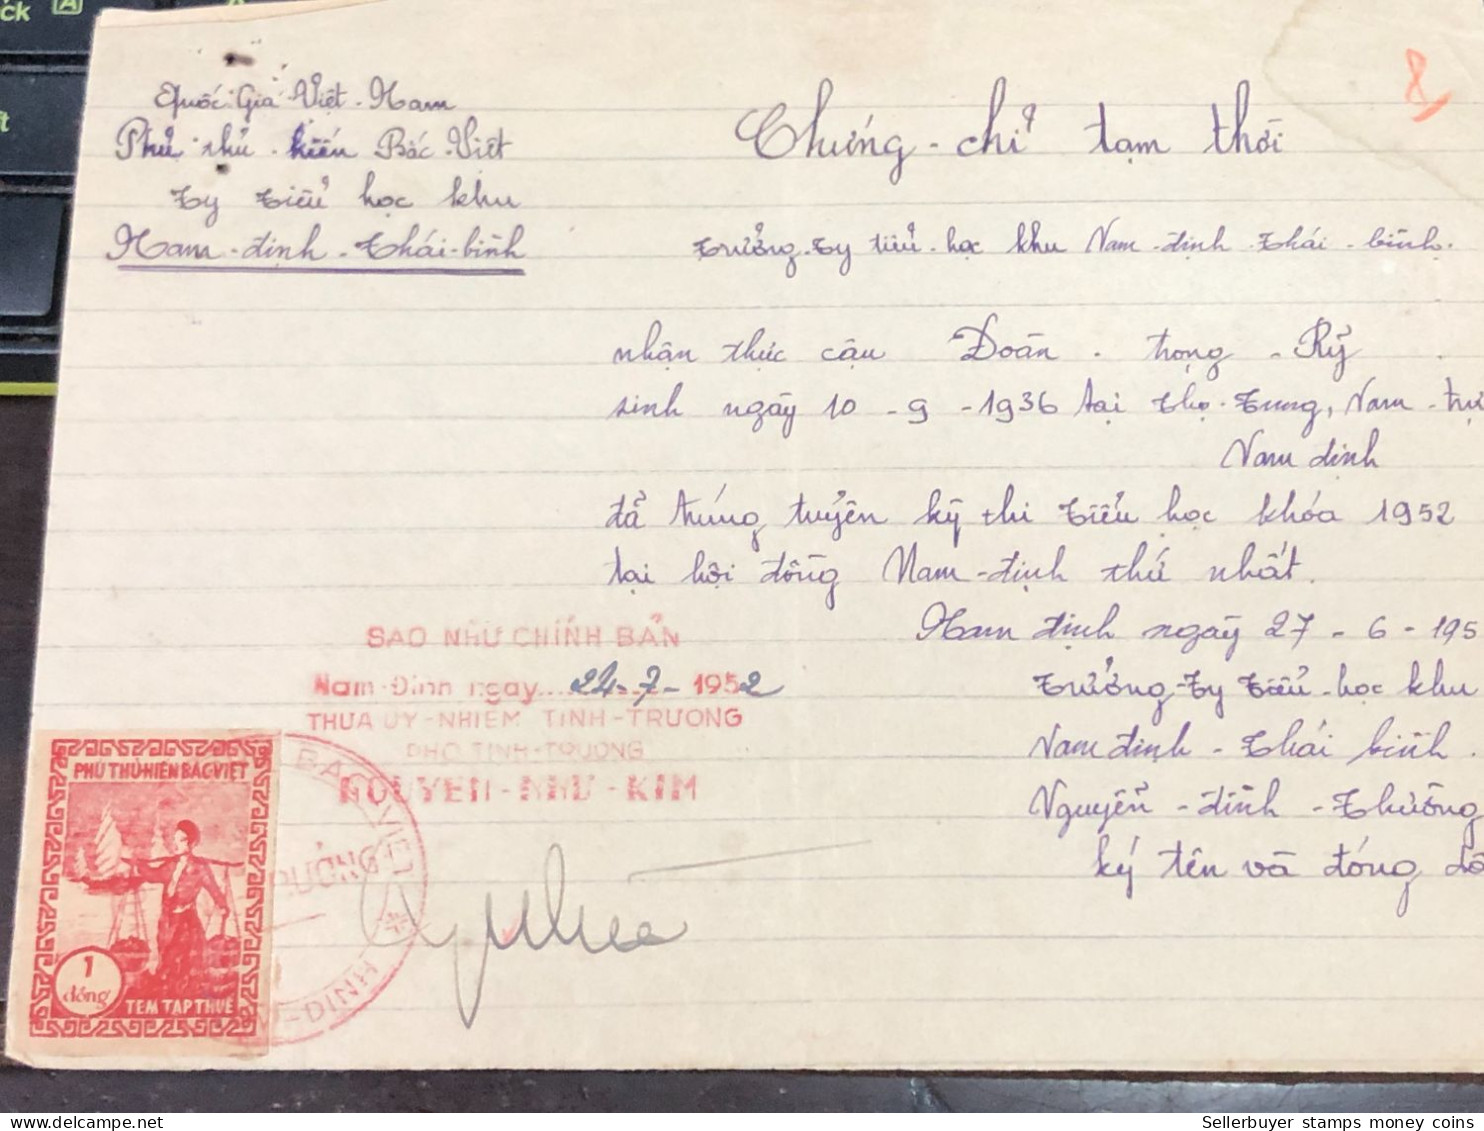 Quốc Gia Việt-Nam
Phủ thủ hiến Bắc-Việt
Ty tiểu học khu
Nam-định-Thái-bình
8
Chứng-chỉ tạm thời
Trưởng-ty tiểu-học khu Nam-định-Thái-bình.
nhận thực cậu Đoàn-trọng-Kỷ
sinh ngày 10-9-1936 tại Thọ-Tung, Nam-trự
Nam định
đã trúng tuyển kỳ thi tiểu học khóa 1952
tại hội đồng Nam-định thứ nhất.
Nam định ngày 27-6-195
Trưởng-ty tiểu-học khu
Nam định-Thái bình.
Nguyễn-đình-Thường
ký tên và đóng dấ
SAO NHƯ CHÍNH BẢN
Nam-Định ngày 24-7-1952
THỪA ỦY-NHIỆM TỈNH-TRƯỞNG
PHÓ TỈNH-TRƯỞNG
NGUYEN-NHU-KIM
PHỦ THỦ HIẾN BẮC VIỆT
1
đồng
TEM TẠP THUẾ
BẮC VIỆT
ƯỞNG
-ĐỊNH
ck
A
t
Sellerbuyer stamps money coins